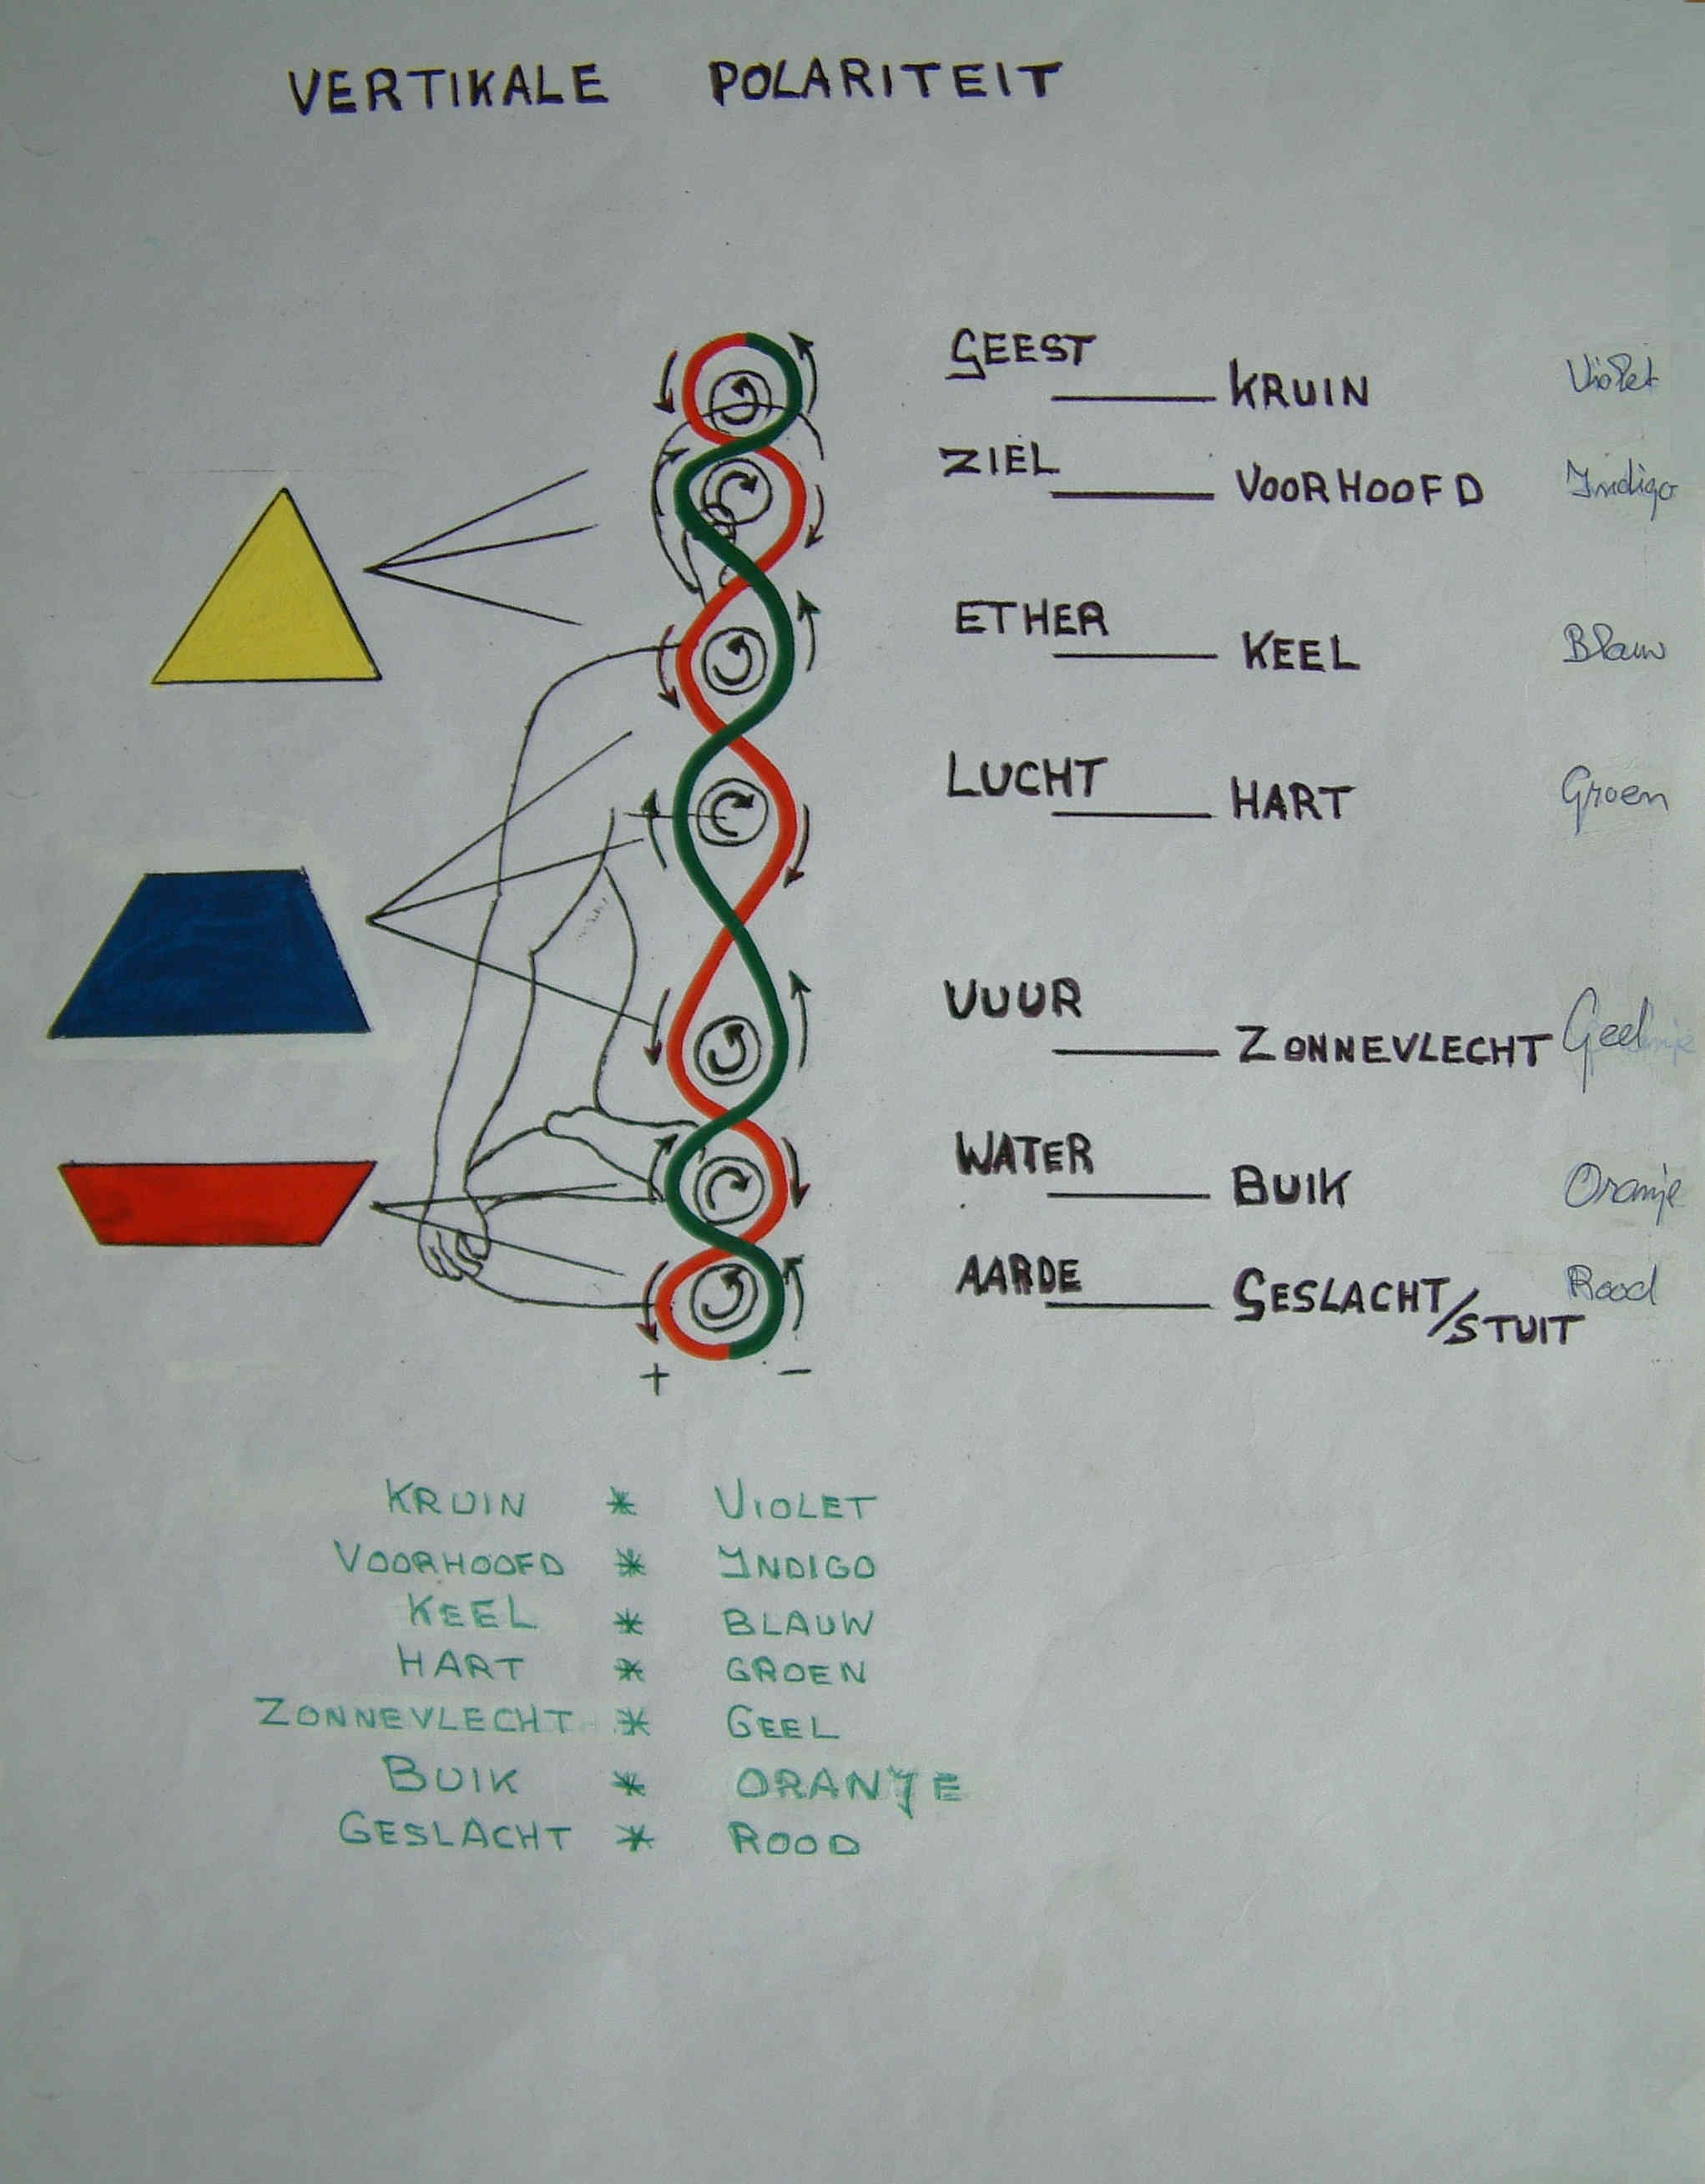 VERTIKALE POLARITEIT
GEEST KRUIN Violet
ZIEL VOORHOOFD Indigo
ETHER KEEL Blauw
LUCHT HART Groen
VUUR ZONNEVLECHT Geel
WATER BUIK Oranje
AARDE GESLACHT/ Rood
STUIT
+ −
KRUIN * VIOLET
VOORHOOFD * INDIGO
KEEL * BLAUW
HART * GROEN
ZONNEVLECHT * GEEL
BUIK * ORANJE
GESLACHT * ROOD